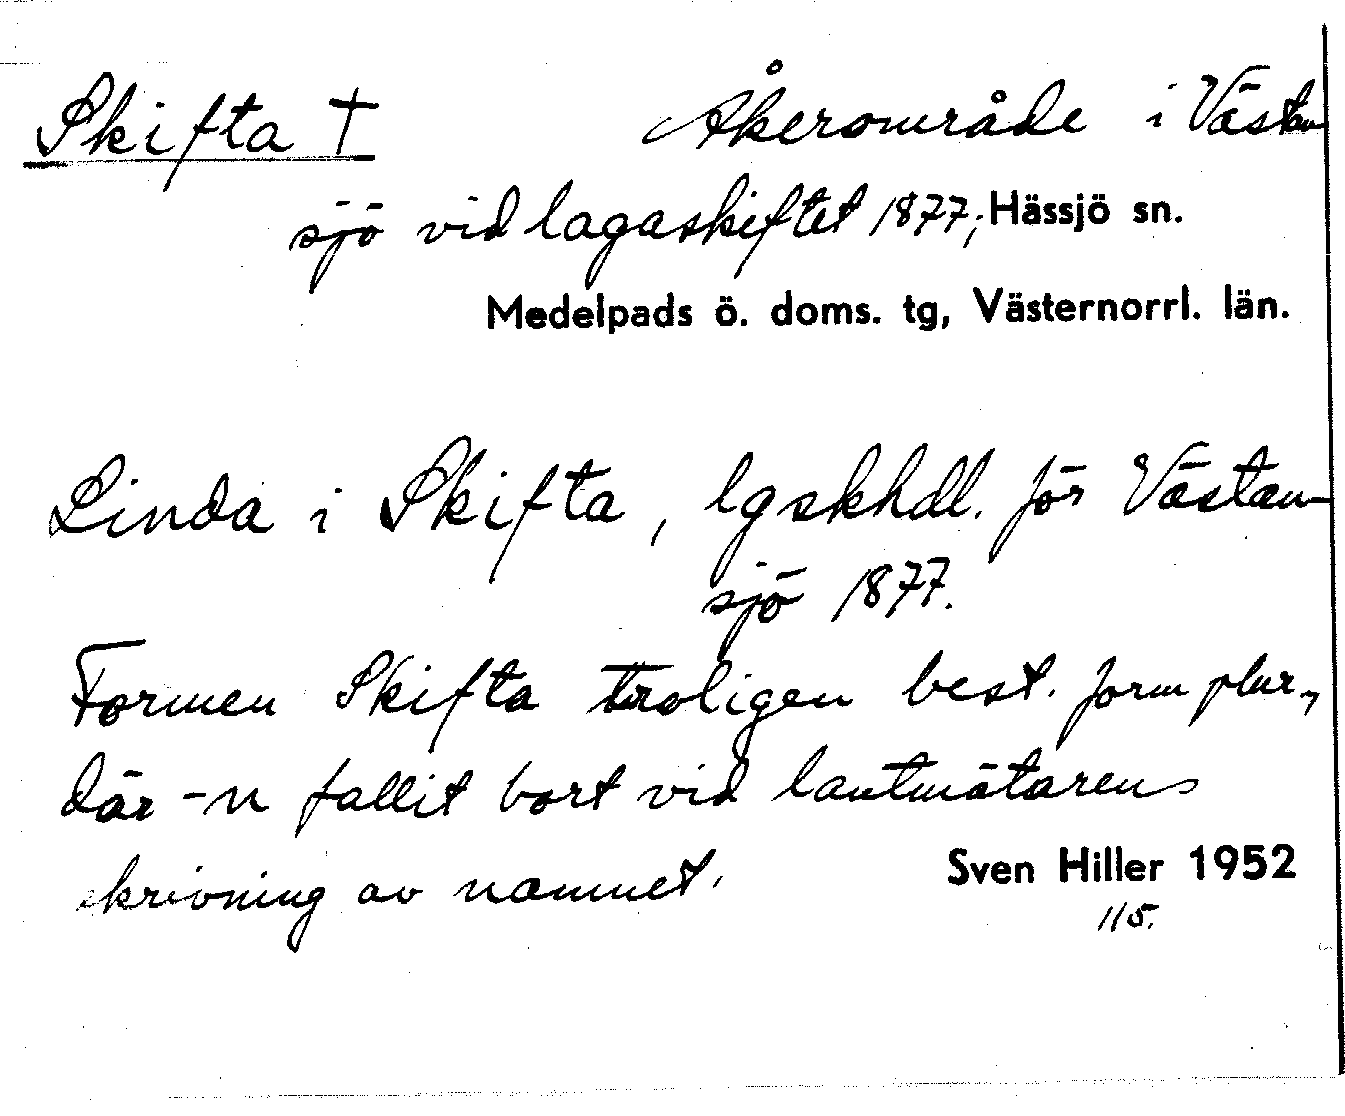 Skifta † Åkerområde i Västan
sjö vid lagaskiftet 1877, Hässjö sn.
Medelpads ö. doms. tg, Västernorrl. län.
Linda i Skifta, lgskhdl. för Västan-
sjö 1877.
Formen Skifta troligen best. form plur.,
där -n fallit bort vid lantmätarens
skrivning av namnet.
Sven Hiller 1952
115.